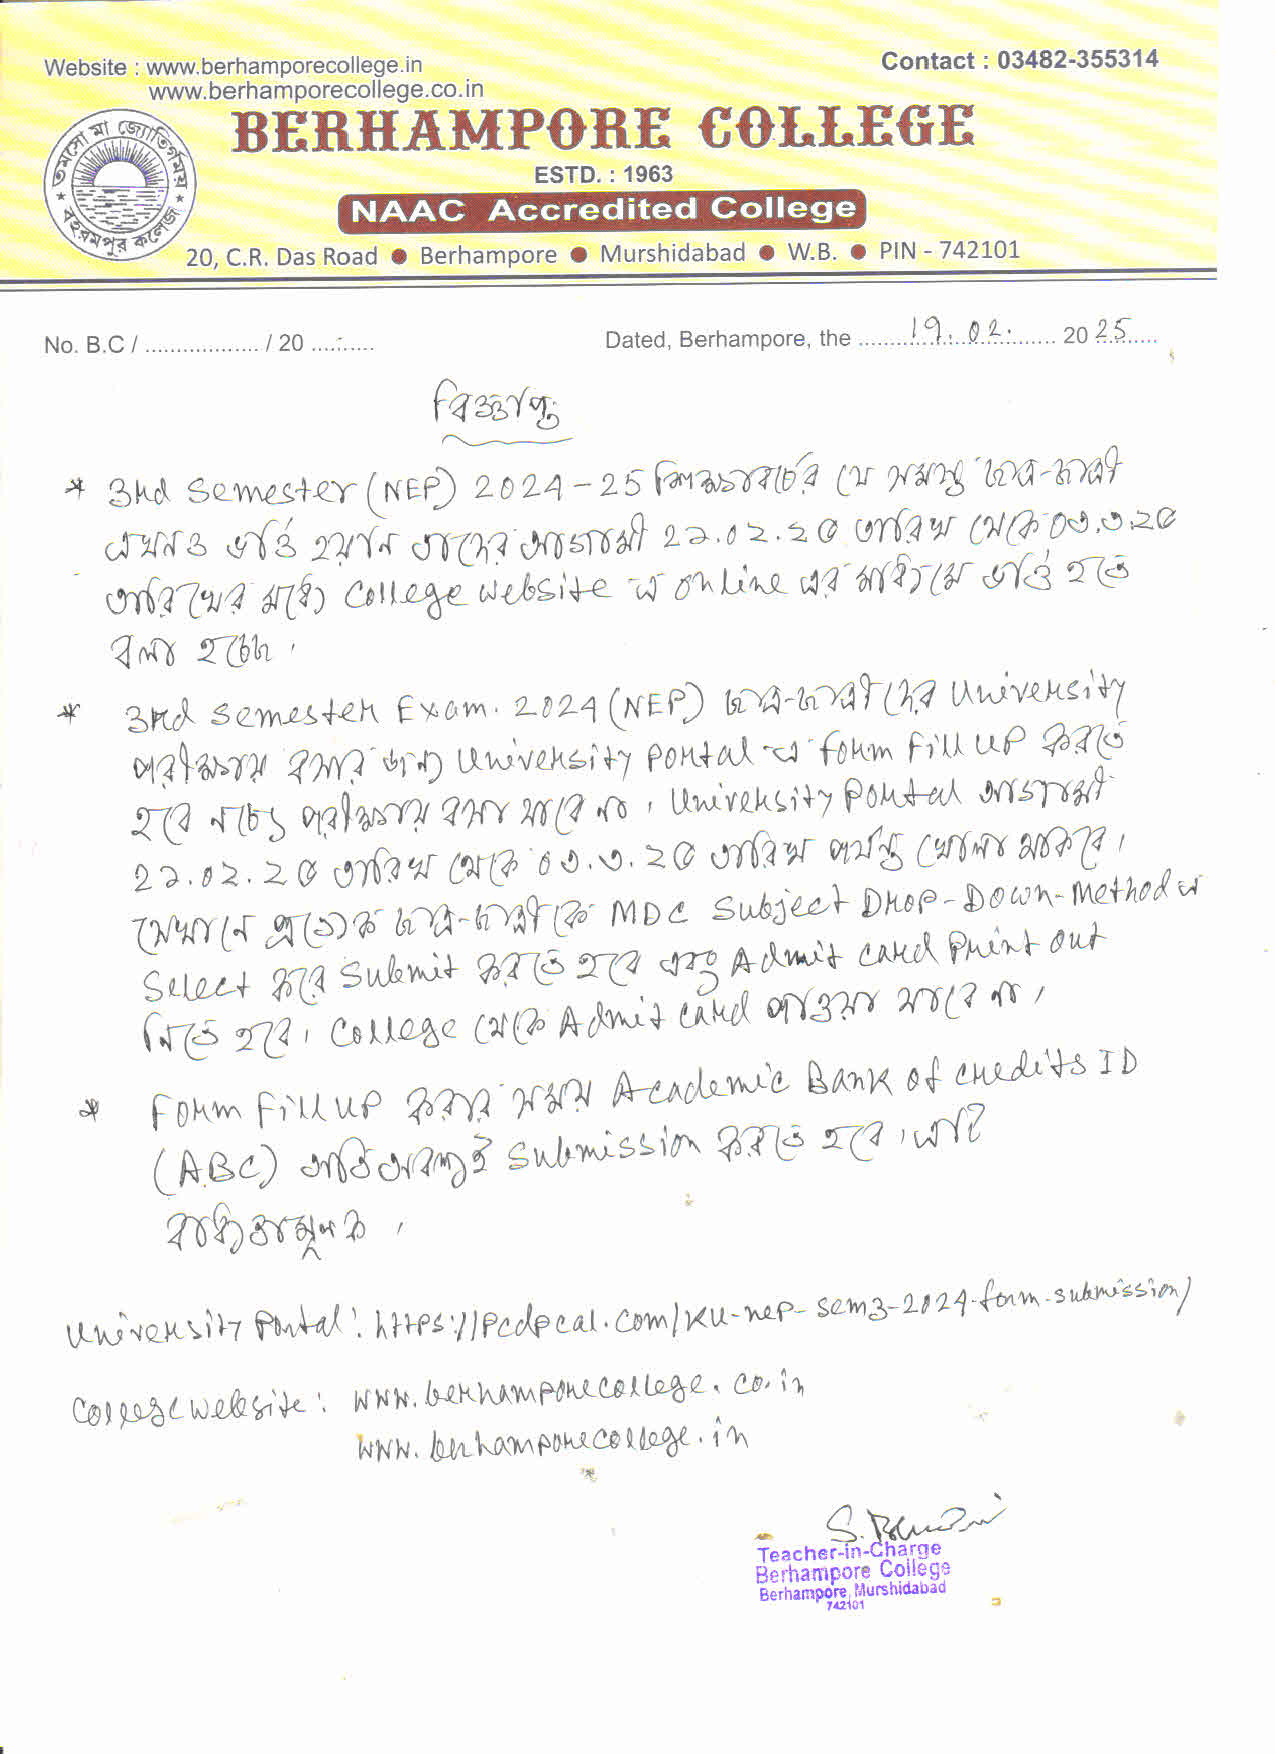 Website : www.berhamporecollege.in
www.berhamporecollege.co.in
Contact : 03482-355314
তমসো মা জ্যোতির্গময়
বহরমপুর কলেজ
BERHAMPORE COLLEGE
ESTD. : 1963
NAAC Accredited College
20, C.R. Das Road ● Berhampore ● Murshidabad ● W.B. ● PIN - 742101
No. B.C / .................. / 20 ..........
Dated, Berhampore, the 19.02. 2025
বিজ্ঞপ্তি
* 3rd Semester (NEP) 2024-25 শিক্ষাবর্ষের যে সমস্ত ছাত্র-ছাত্রী
এখনও ভর্তি হয়নি তাদের আগামী ২১.০২.২৫ তারিখ থেকে ০৩.৩.২৫
তারিখের মধ্যে College website এ online এর মাধ্যমে ভর্তি হতে
বলা হচ্ছে।
* 3rd Semester Exam. 2024 (NEP) ছাত্র-ছাত্রীদের University
পরীক্ষায় বসার জন্য University Portal এ Form Fill UP করতে
হবে নচেৎ পরীক্ষায় বসা যাবে না। University Portal আগামী
২১.০২.২৫ তারিখ থেকে ০৩.৩.২৫ তারিখ পর্যন্ত খোলা থাকবে।
সেখানে প্রত্যেক ছাত্র-ছাত্রীকে MDC Subject Drop-Down-Method এ
Select করে Submit করতে হবে এবং Admit card Print out
নিতে হবে। College থেকে Admit card পাওয়া যাবে না।
* Form Fill UP করার সময় Academic Bank of credits ID
(ABC) অতিঅবশ্যই Submission করতে হবে। এটি
বাধ্যতামূলক।
University Portal: https://pcdpcal.com/ku-nep-sem3-2024-form-submission/
College website: www.berhamporecollege.co.in
www.berhamporecollege.in
Teacher-in-Charge
Berhampore College
Berhampore, Murshidabad
742101